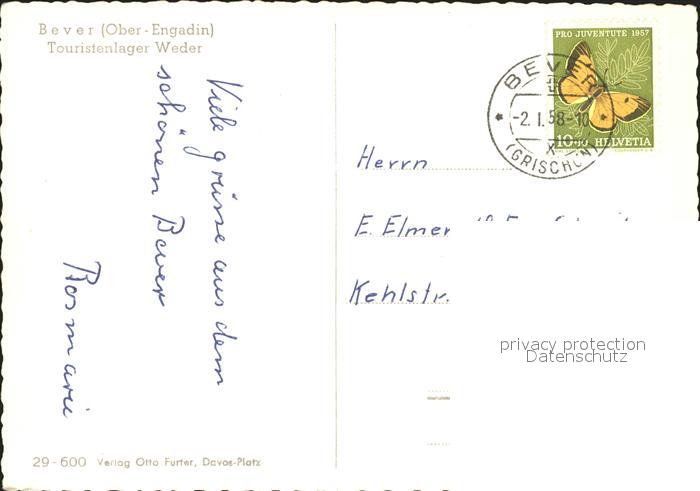 Bever (Ober-Engadin)
Touristenlager Weder
Viele grüsse aus dem
schönen Bever
Rosmarie
29-600 Verlag Otto Furter, Davos-Platz
PRO JUVENTUTE 1957
10+10 HELVETIA
BEVER
-2.I.58-10
X
(GRISCHUN)
Herrn
E. Elmer
Kehlstr.
privacy protection
Datenschutz